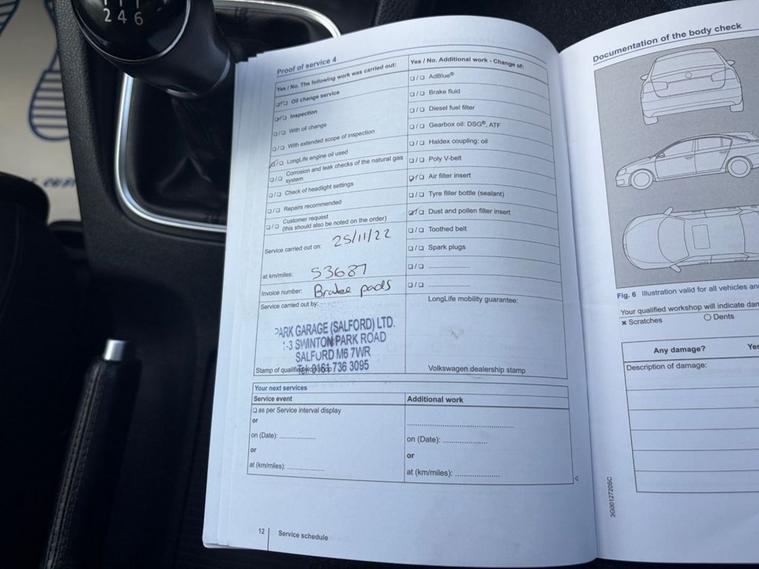 2 4 6
Proof of service 4
Yes / No. The following work was carried out:
Oil change service
Inspection
With oil change
With extended scope of inspection
LongLife engine oil used
Corrosion and leak checks of the natural gas
system
Check of headlight settings
Repairs recommended
Customer request
(this should also be noted on the order)
Service carried out on: 25/11/22
at km/miles: 53687
Invoice number: Brake pads
Service carried out by:
PARK GARAGE (SALFORD) LTD.
1-3 SWINTON PARK ROAD
SALFORD M6 7WR
Tel: 0161 736 3095
Stamp of qualified
Yes / No. Additional work - Change of:
AdBlue®
Brake fluid
Diesel fuel filter
Gearbox oil: DSG®, ATF
Haldex coupling: oil
Poly V-belt
Air filter insert
Tyre filler bottle (sealant)
Dust and pollen filter insert
Toothed belt
Spark plugs
LongLife mobility guarantee:
Volkswagen dealership stamp
Your next services
Service event
as per Service interval display
or
on (Date):
or
at (km/miles):
Additional work
on (Date):
or
at (km/miles):
12 Service schedule
Documentation of the body check
Fig. 6 Illustration valid for all vehicles
Your qualified workshop will indicate
× Scratches
Dents
Any damage?
Description of damage: